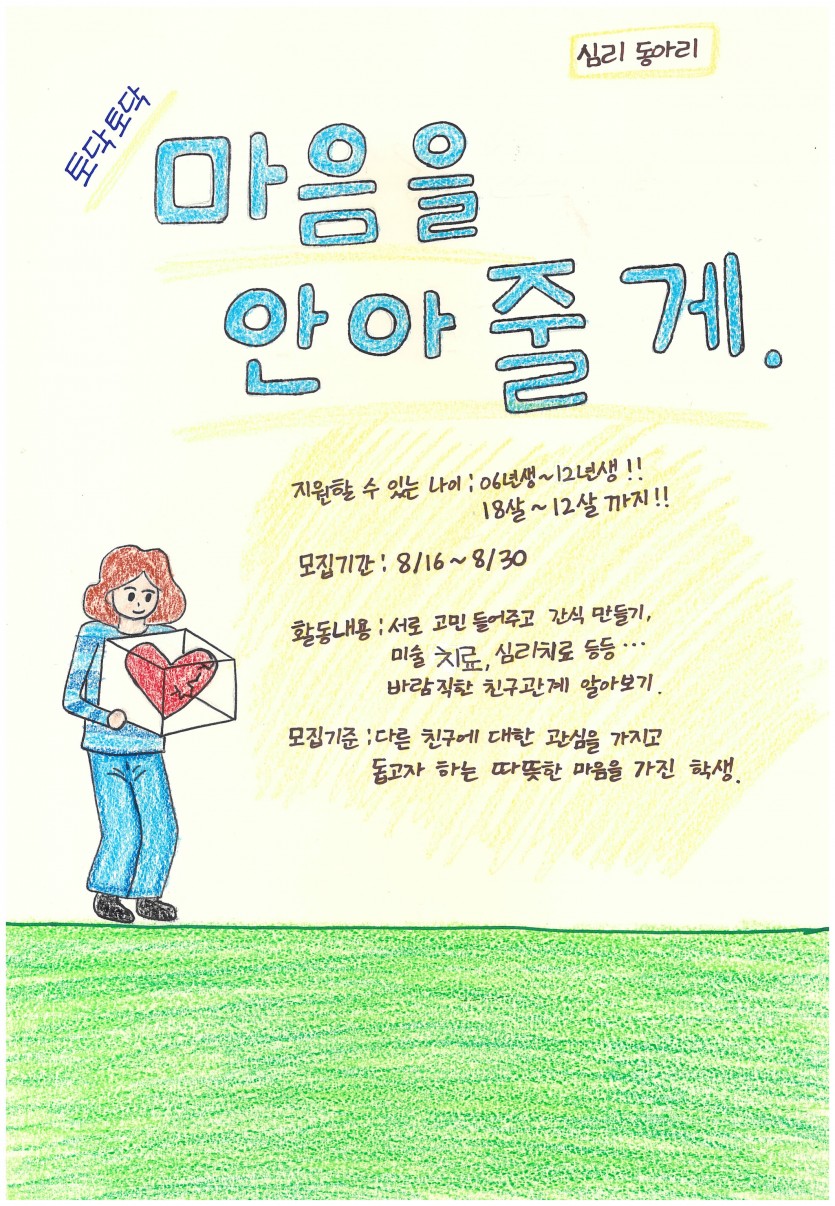 심리 동아리
토닥토닥
마음을
안아줄게.
지원할 수 있는 나이 : 06년생~12년생!!
18살~12살 까지!!
모집기간 : 8/16~8/30
활동내용 : 서로 고민 들어주고 간식 만들기,
미술 치료, 심리치료 등등…
바람직한 친구관계 알아보기.
모집기준 : 다른 친구에 대한 관심을 가지고
돕고자 하는 따뜻한 마음을 가진 학생.